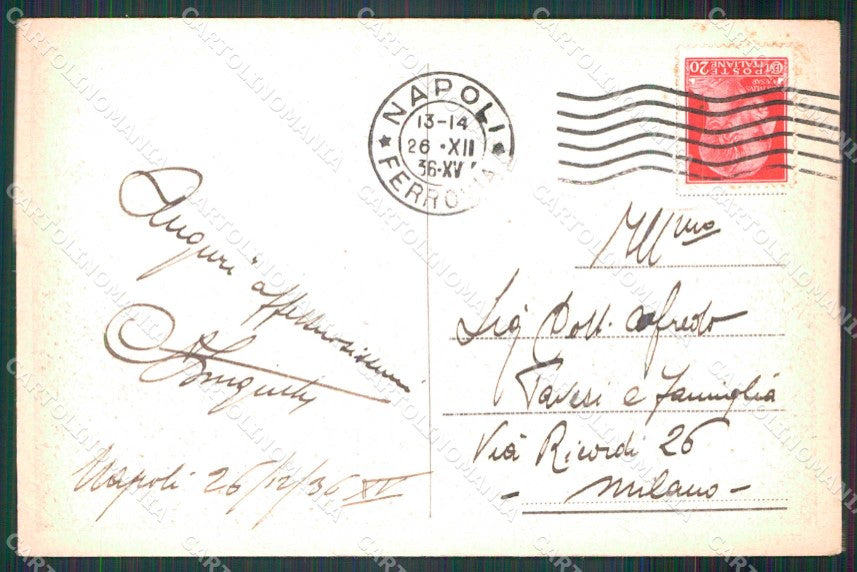 NAPOLI
13-14
26 · XII
36·XV
FERROVIA
POSTE
ITALIANE
20
Auguri affettuosissimi
Napoli 26/12/36 XV
Ill mo
Sig Dott. Alfredo
Pavesi e famiglia
Via Ricordi 26
- Milano -
CARTOLINOMANIA